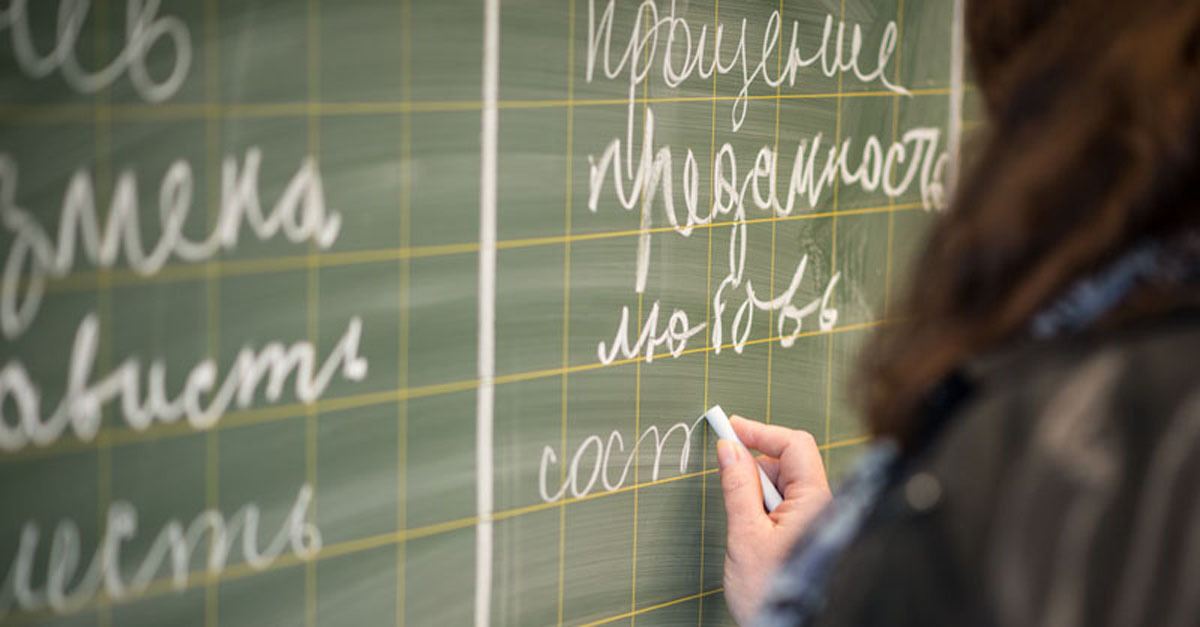 ев
змена
ависть
есть
прощение
преданность
любовь
сост